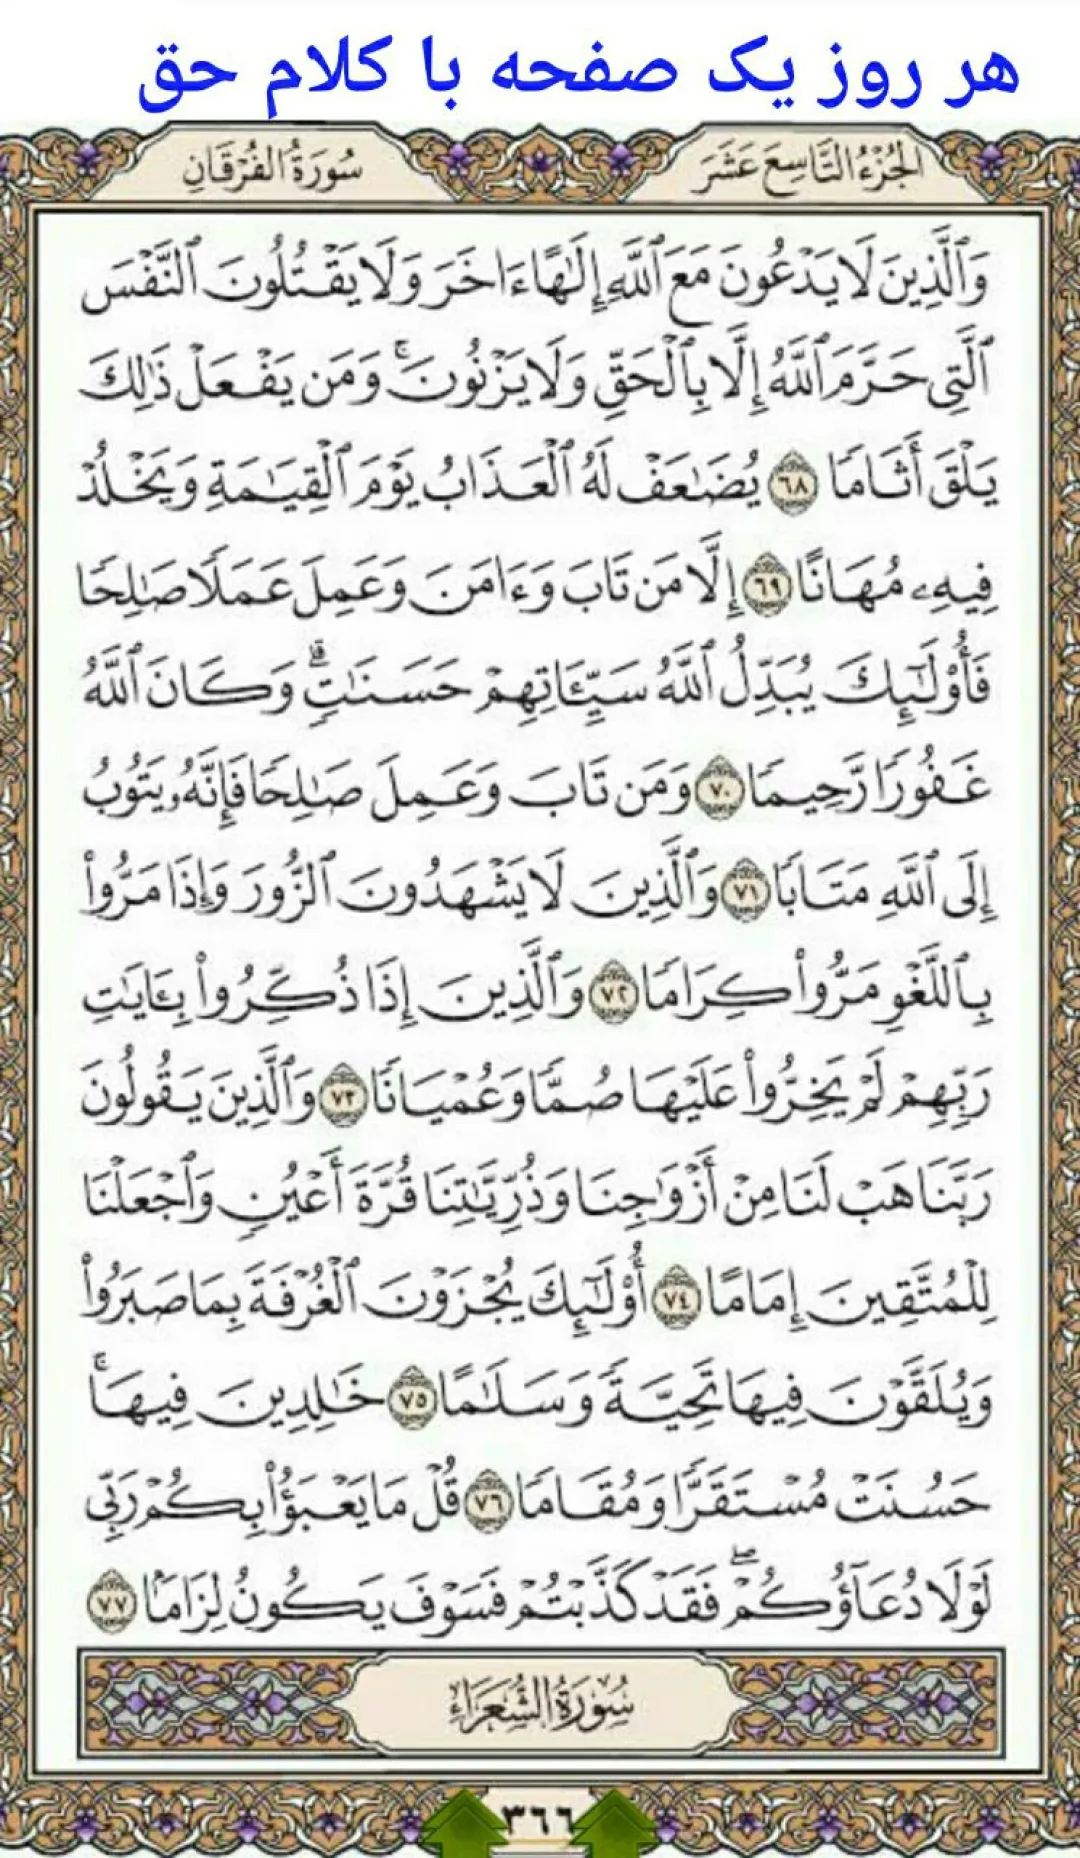 هر روز یک صفحه با کلام حق
الجُزْءُ التَّاسِعَ عَشَرَ
سُورَةُ الفُرْقَانِ
وَٱلَّذِينَ لَا يَدْعُونَ مَعَ ٱللَّهِ إِلَٰهًا ءَاخَرَ وَلَا يَقْتُلُونَ ٱلنَّفْسَ
ٱلَّتِى حَرَّمَ ٱللَّهُ إِلَّا بِٱلْحَقِّ وَلَا يَزْنُونَۚ وَمَن يَفْعَلْ ذَٰلِكَ
يَلْقَ أَثَامًا ۝٦٨ يُضَٰعَفْ لَهُ ٱلْعَذَابُ يَوْمَ ٱلْقِيَٰمَةِ وَيَخْلُدْ
فِيهِۦ مُهَانًا ۝٦٩ إِلَّا مَن تَابَ وَءَامَنَ وَعَمِلَ عَمَلًا صَٰلِحًا
فَأُو۟لَٰٓئِكَ يُبَدِّلُ ٱللَّهُ سَيِّـَٔاتِهِمْ حَسَنَٰتٍۗ وَكَانَ ٱللَّهُ
غَفُورًا رَّحِيمًا ۝٧٠ وَمَن تَابَ وَعَمِلَ صَٰلِحًا فَإِنَّهُۥ يَتُوبُ
إِلَى ٱللَّهِ مَتَابًا ۝٧١ وَٱلَّذِينَ لَا يَشْهَدُونَ ٱلزُّورَ وَإِذَا مَرُّوا۟
بِٱللَّغْوِ مَرُّوا۟ كِرَامًا ۝٧٢ وَٱلَّذِينَ إِذَا ذُكِّرُوا۟ بِـَٔايَٰتِ
رَبِّهِمْ لَمْ يَخِرُّوا۟ عَلَيْهَا صُمًّا وَعُمْيَانًا ۝٧٣ وَٱلَّذِينَ يَقُولُونَ
رَبَّنَا هَبْ لَنَا مِنْ أَزْوَٰجِنَا وَذُرِّيَّٰتِنَا قُرَّةَ أَعْيُنٍ وَٱجْعَلْنَا
لِلْمُتَّقِينَ إِمَامًا ۝٧٤ أُو۟لَٰٓئِكَ يُجْزَوْنَ ٱلْغُرْفَةَ بِمَا صَبَرُوا۟
وَيُلَقَّوْنَ فِيهَا تَحِيَّةً وَسَلَٰمًا ۝٧٥ خَٰلِدِينَ فِيهَاۚ
حَسُنَتْ مُسْتَقَرًّا وَمُقَامًا ۝٧٦ قُلْ مَا يَعْبَؤُا۟ بِكُمْ رَبِّى
لَوْلَا دُعَآؤُكُمْۖ فَقَدْ كَذَّبْتُمْ فَسَوْفَ يَكُونُ لِزَامًۢا ۝٧٧
سُورَةُ الشُّعَرَاءِ
٣٦٦